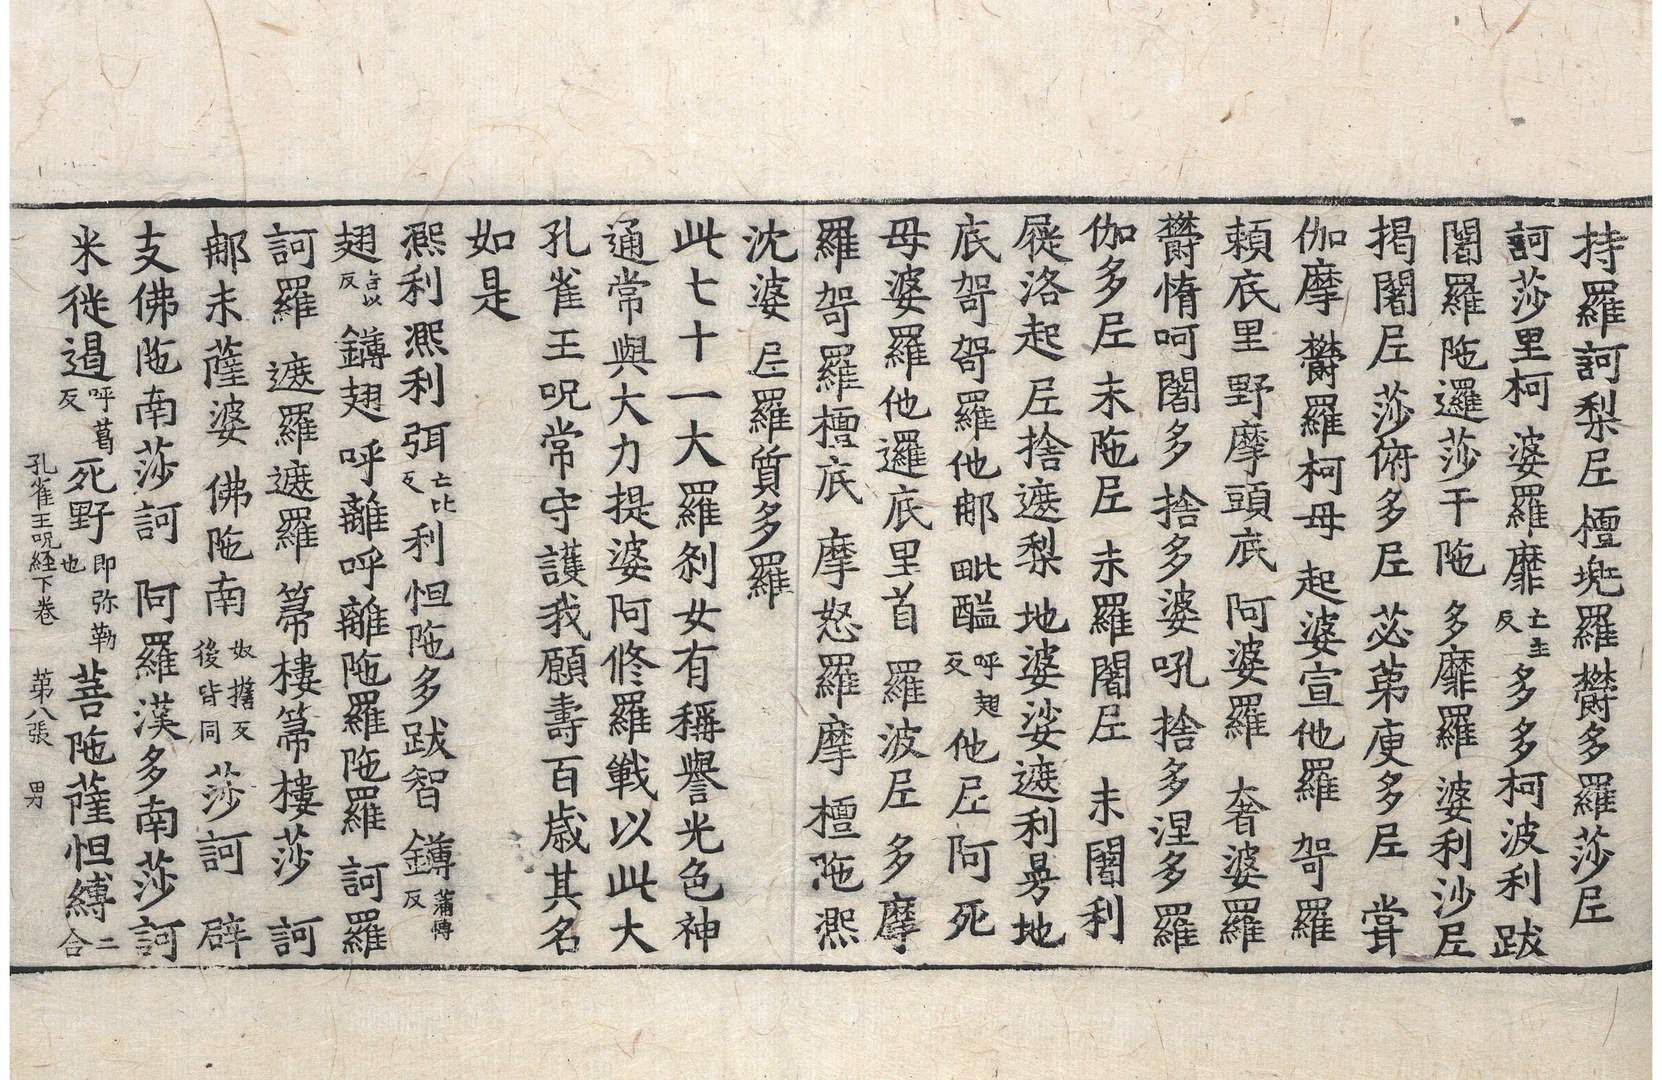 持羅訶梨𡰱 檀堍羅欝多羅莎𡰱
訶莎里柯 婆羅靡亡主反多多柯波利 跋
闍羅陁邏莎干陁 多靡羅 婆利沙𡰱
揭闍𡰱 莎俯多𡰱 苾苐庾多𡰱 甞
伽摩 欝羅柯母 起婆宣他羅 哿羅
頼底里 野摩頭底 阿婆羅 奢婆羅
欝惰呵闍多 捨多婆吼 捨多涅多羅
伽多𡰱 末陁𡰱 未羅闍𡰱 未闍利
屣洛起 𡰱捨遮梨 地婆娑遮利 㫷地
底 哿哿羅他郍毗㽗醯呼翅反他𡰱 阿死
母婆羅他邏底里首 羅波𡰱 多摩
羅 哿羅檀底 摩怒羅摩 檀陁 熈
沈婆 𡰱羅質多羅
此七十一大羅剎女有稱譽光色神
通常與大力提婆阿修羅戰以此大
孔雀王呪常守護我願壽百歲其名
如是
熈利熈利弭亡比反利怛陁多跋智 鎛蒲慱反
翅占以反鎛翅 呼離呼離陁羅陁羅 訶羅
訶羅 遮羅遮羅 箒樓箒樓莎 訶
郍末薩婆 佛陁南奴搆反後皆同莎訶 辟
支佛陁南莎訶 阿羅漢多南莎訶
米徙遏呼葛反死野即弥勒也菩陁薩怛縛二合
孔雀王呪経下卷 苐八張 男